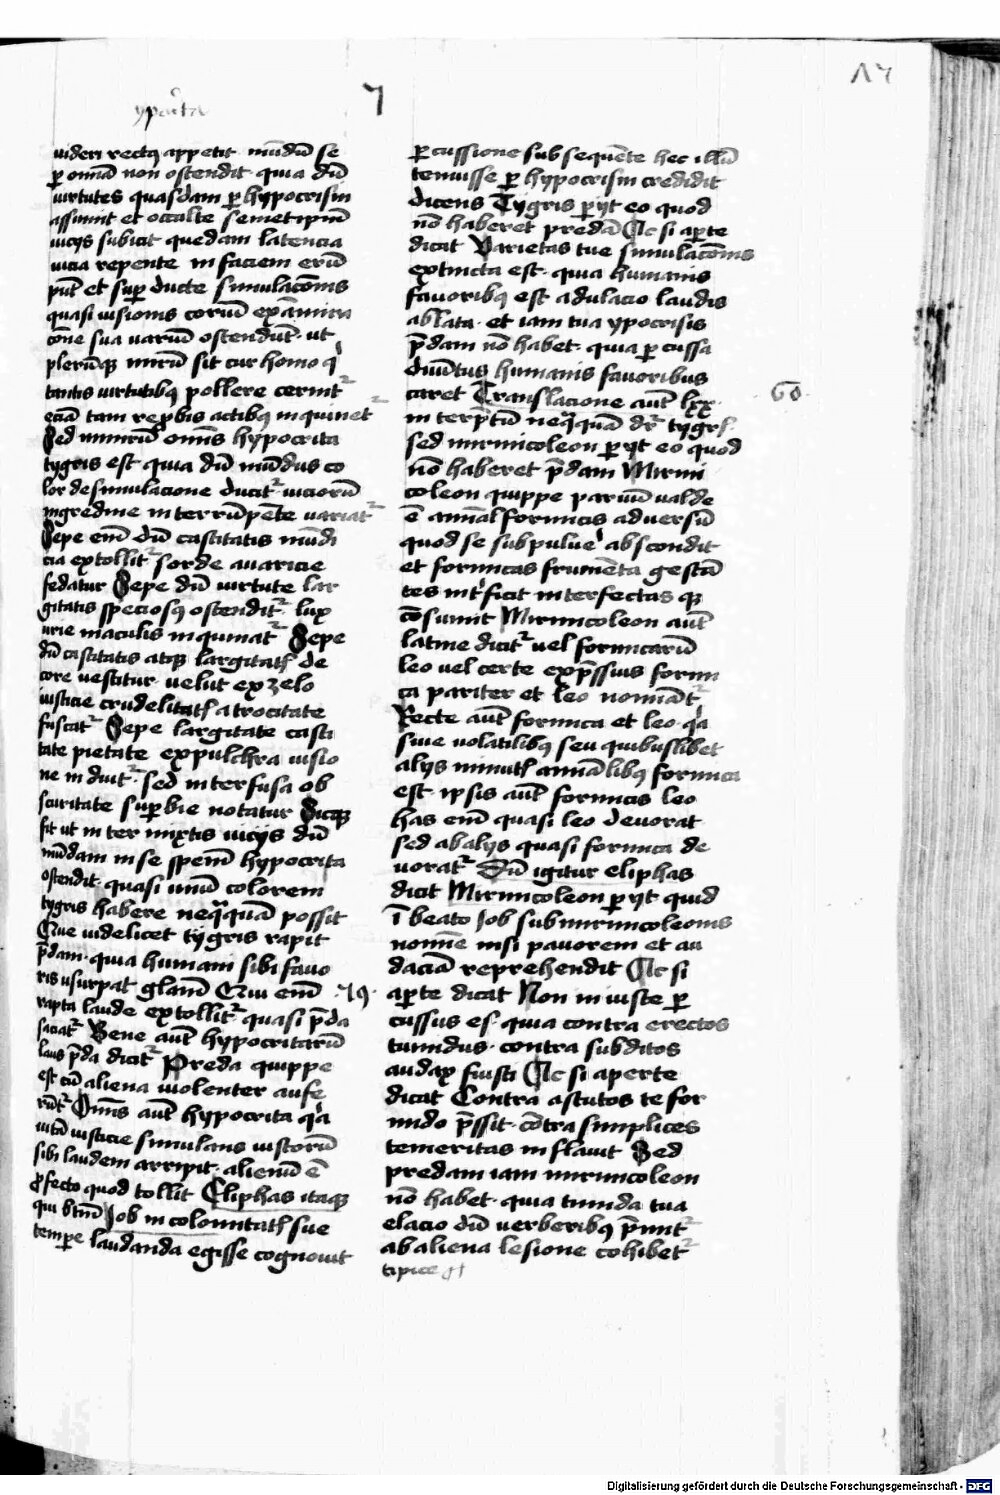 17
7
ypocrita
videri rectus appetit · mūdū se
ꝑ omīa non ostendit · quia dū
virtutes quasdam ꝑ hypocrisim
assumit et occulte semetipm̄
vicijs subicit quedam latencia
vicia repente in faciem erū
pūt et suꝑ ducte simulac̄onis
quasi visionis coriū exāmina
cōne sua variū ostendūt · ut
plerūqꝫ mirū sit cur homo qͥ
tantis virtutibꝰ pollere cernitᷣ
eciā tam reꝓbis actibus inquinetᷣ
Sed nimirū omnis hypocrita
tygris est quia dū mūdus co
lor de simulacione ducitᷣ viciorū
nigredine interrūpēte variatᷣ
Sepe em̄ dū castitatis mūdi
cia extollitᷣ sorde avaricie
fedatur Sepe dū virtute lar
gitatis speciosꝰ ostenditᷣ lux
urie maculis inquinatᷣ Sepe
dū castitatis atqꝫ largitatꝭ de
core vestitur · velut ex zelo
iusticie crudelitatꝭ atrocitate
fuscatᷣ Sepe largitate casti
tate pietate ex pulchra visio
ne induitᷣ · sed interfusa ob
scuritate suꝑbie notatur Sicqꝫ
fit ut inter mixtis vicijs dū
mūdam in se spem̄ hypocrita
ostendit · quasi unū colorem
tygris habere neqͣquā possit
Que videlicet tygris rapit
p̄dam · quia humani sibi favo
ris usurpat gl̄am Qui em̄
19 ·
rapta laude extollitᷣ quasi p̄da
saciatᷣ Bene aut̄ hypocritarū
laus p̄da dicitᷣ Preda quippe
est cū aliena violenter aufe
rūtᷣ Om̄is aut̄ hypocrita qͥa
vitā iusticie simulans iustorū
sibi laudem arripit · alienū ē
ꝓfecto quod tollit Eliphas itaqꝫ
qui btm̄ Job in colomitatꝭ sue
tempe laudanda egisse cognovit
ꝑcussione subsequēte hec illū
tenuisse ꝑ hypocrisim credidit
dicens Tygris ꝑijt eo quod
nō haberet predā Ac si aꝑte
dicat Varietas tue simulac̄onis
extincta est · quia humanis
favoribꝰ est adulacio laudis
ablata · et iam tua ypocrisis
p̄dam nō habet · quia ꝑcussa
divinitus humanis favoribus
caret Translacione aut̄ lxx
60 ·
interp̄tū neqͣquā drᷣ tygrꝭ
sed mirmicoleon ꝑijt eo quod
nō haberet p̄dam Mirmi
coleon quippe parvū valde
ē aīal formicis adversū
quod se sub pulveͤ abscondit
et formicas frumēta gestā
tes int͛ficit interfectas qꝫ
cōsumit Mirmicoleon aut̄
latine dicitᷣ vel formicarū
leo vel certe exp̄ssius formi
ca pariter et leo nomiātᷣ
Recte aut̄ formica et leo · qͥa
sive volatilibꝰ seu quibuslibet
alijs minutꝭ animālibꝰ formica
est · ipsis aut̄ formicis leo
has em̄ quasi leo devorat
sed ab alijs quasi formica de
voratᷣ Dū igitur eliphas
dicit Mirmicoleon ꝑijt quid
ī beato Job sub mirmicoleonis
nomīe nisi pavorem et au
daciā reprehendit Ac si
aꝑte dicat Non iniuste ꝑ
cussus es · quia contra erectos
timidus · contra subditos
audax fuisti Ac si aperte
dicat Contra astutos te for
mido p̄ssit · cōtra simplices
temeritas inflavit Sed
predam iam mirmicoleon
nō habet · quia timida tua
elacio dū verberibꝰ p̄mitᷣ
ab aliena lesione cohibetᷣ
tipice
Digitalisierung gefördert durch die Deutsche Forschungsgemeinschaft - DFG